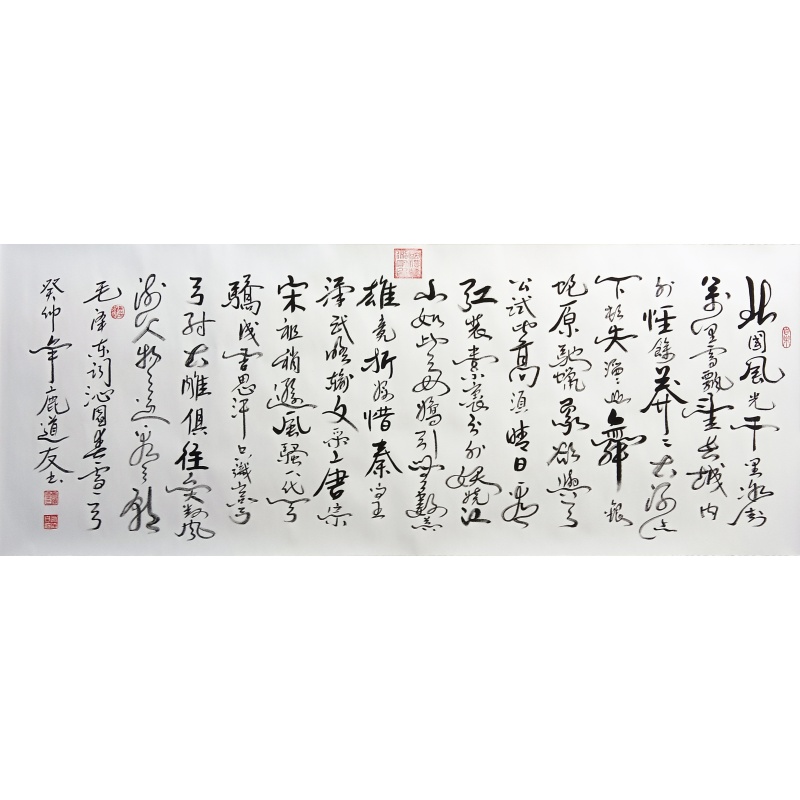 北国风光千里冰封
万里雪飘望长城内
外惟余莽莽大河上
下顿失滔滔山舞银
蛇原驰蜡象欲与天
公试比高须晴日看
红装素裹分外妖娆江
山如此多娇引无数英
雄竞折腰惜秦皇
汉武略输文采唐宗
宋祖稍逊风骚一代天
骄成吉思汗只识弯弓
射大雕俱往矣数风
流人物还看今朝
毛泽东词沁园春雪一首
癸仲年鹿道友书